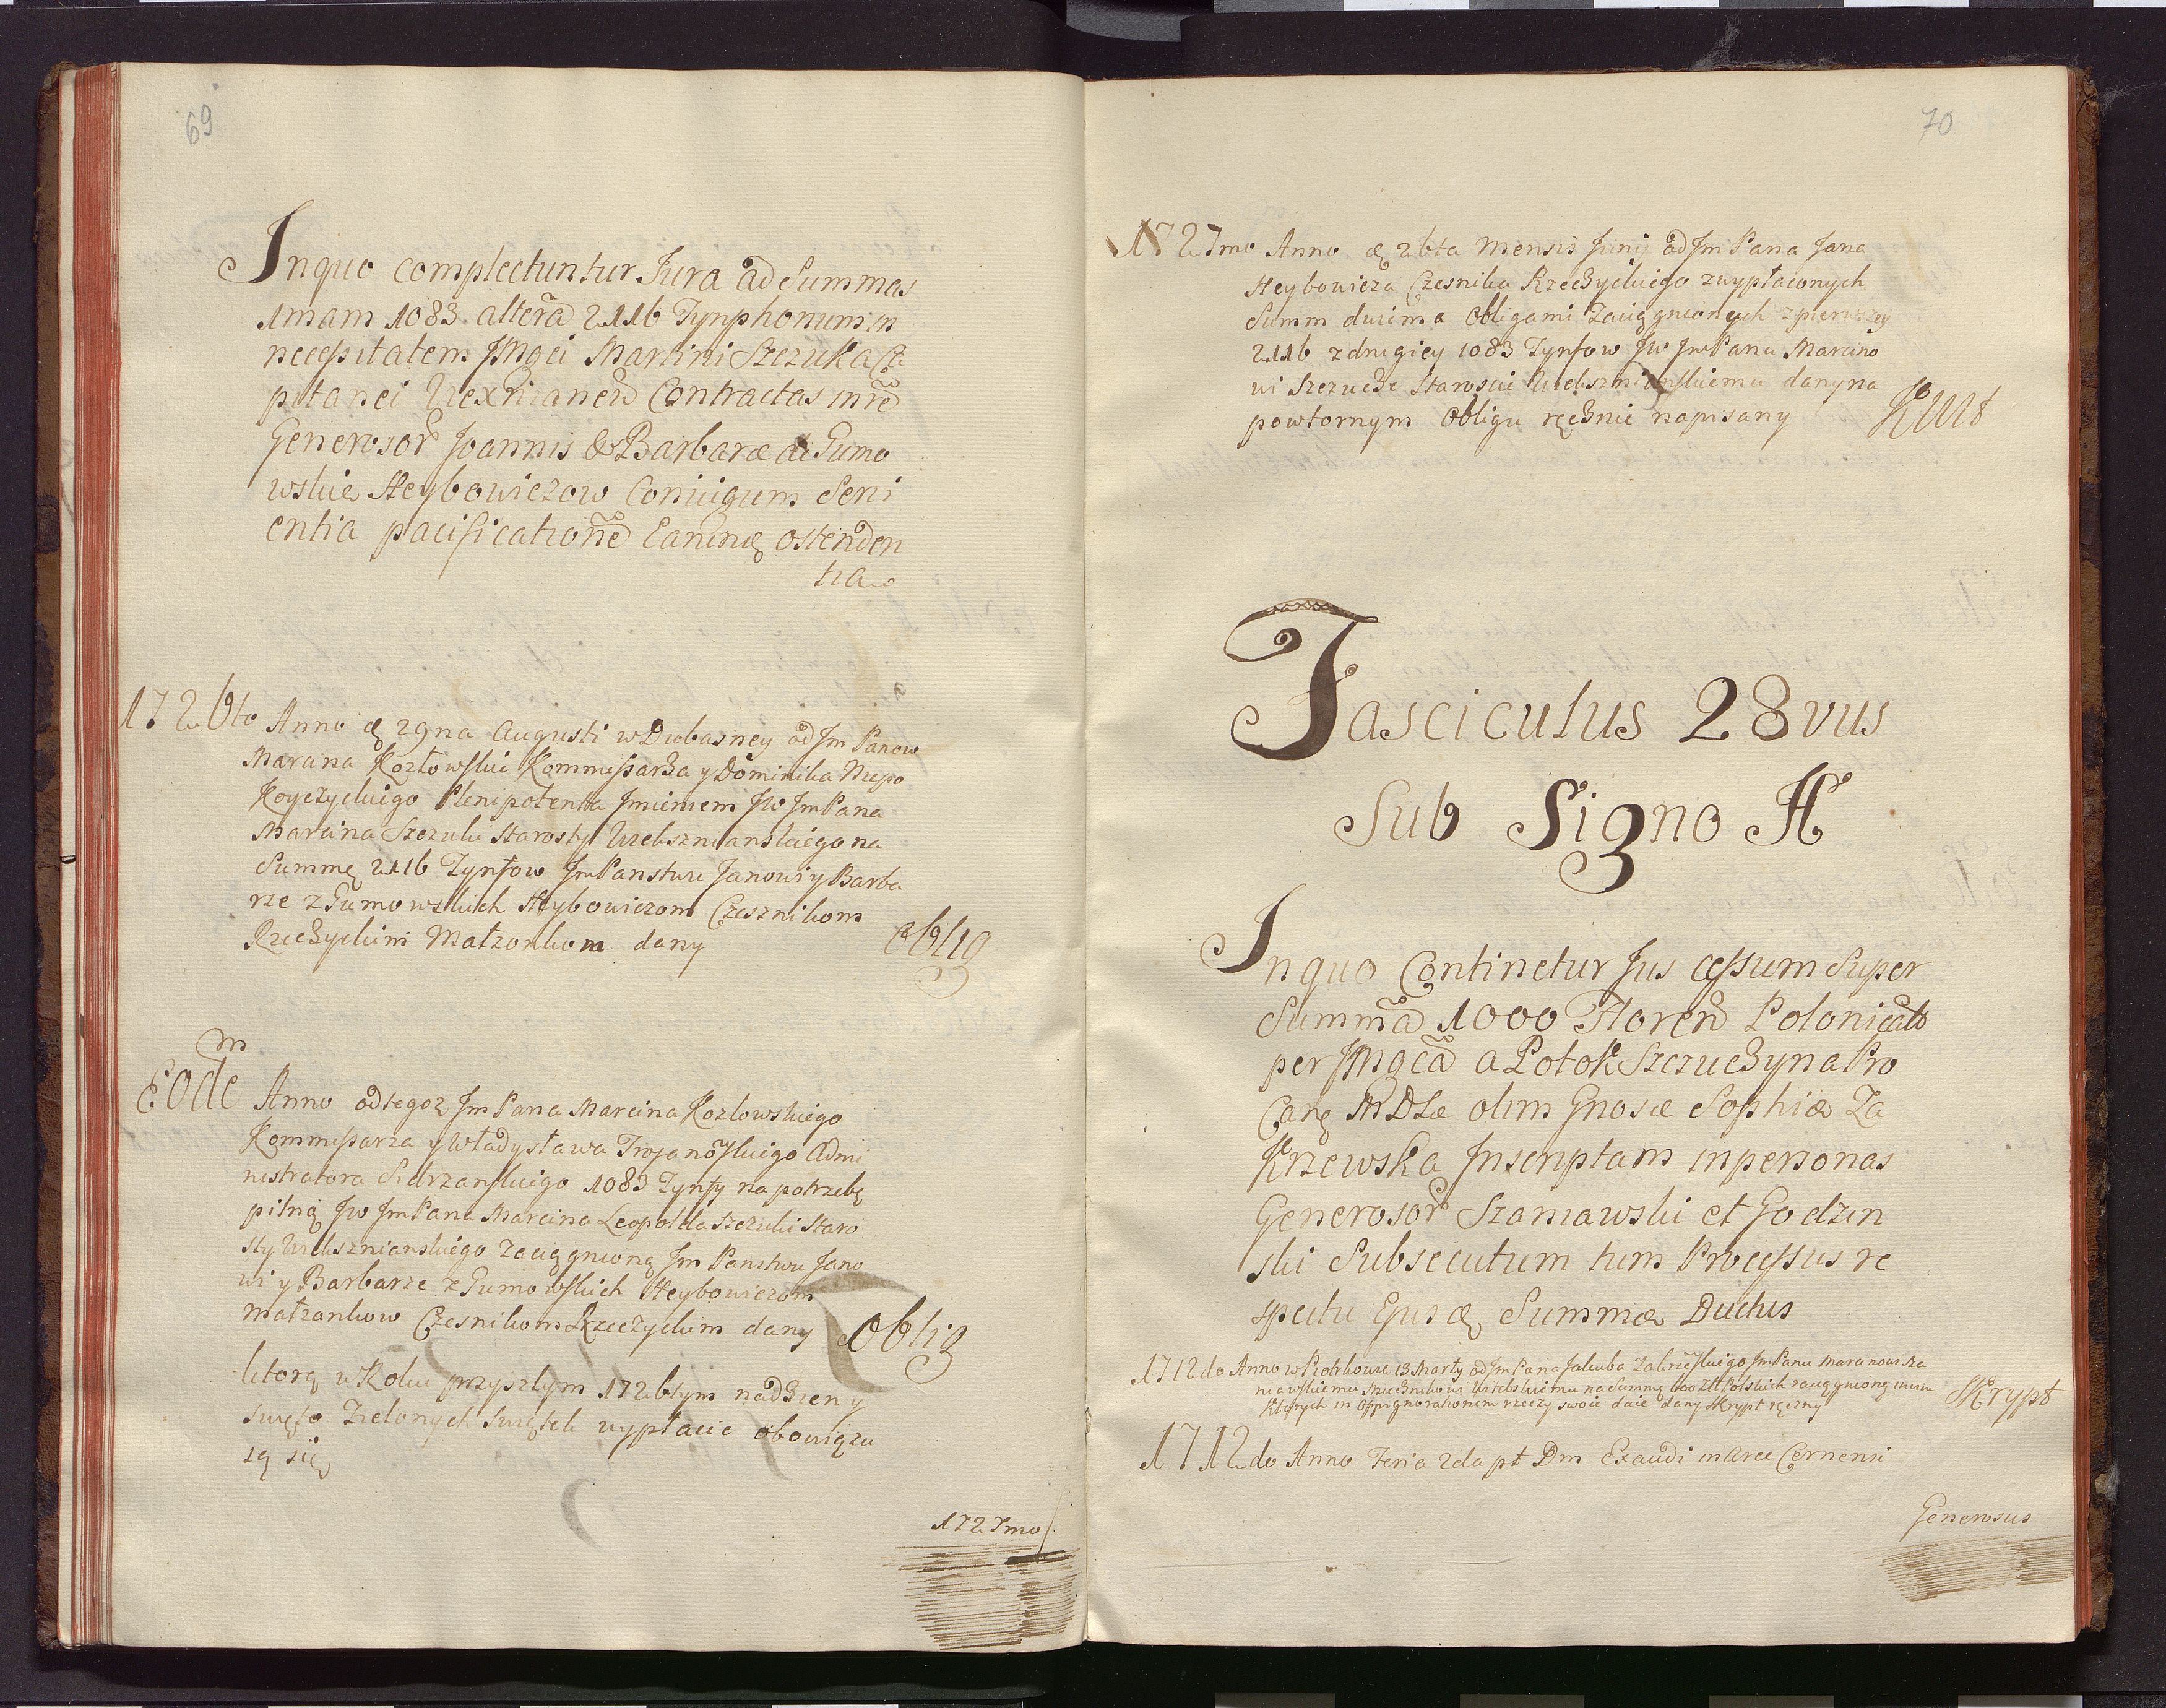 69
In quo complectuntur Jura ad Summas
1mam 1083 alterã 2116 Tynphonum in
necessitatem JMgci Martini Szczuka Ca
pitanei Contractas in rẽ
Generosor Joannis & Barbaræ de Gumo
wskie Heybowiczow Coniugum Seni
entia pacificationẽ Earumq ostenden
tia
1726to Anno æ 29na Augusti w Dubasney od Jm Panow
Marcina Kozłowski Kommissarza y Dominika Niepo
Koyczyckiego Plenipotenta Jmieniem JW JmPana
Marcina Szczuki Starosty Wielsznianskiego na
Summę 2116 Tynfow JmPanstwu Janowi y Barba
rze z Gumowskich Heybowiczom Czesznikom
Rzeczyckim Małzonkom dany Oblig
Eodem Anno od tegoz Jm Pana Marcina Kozlowskiego
Kommissarza y Władysława Trojanoskiego Admi
nistratora Sidrzanskiego 1083 Tynfy na potrzebę
pilną JW JmPana Marcina Leopolda Szczuki Staro
sty Wielsznianskiego Zaciągnioną Jm Panstwu Jano
wi y Barbarze z Gumowskich Heybowiczom
Małzonkow Czesnikom Rzeczyckim dany Oblig
ktorą w Roku przyszłym 1726tym na dzien y
swięto Zielonych Swiątek wypłacic obowiązu
ią się
1727mo
70
1727mo Anno æ 26ta Mensis Junij od Jm Pana Jana
Heybowicza Czesnika Rzeczyckiego z wypłaconych
Summ dwiema Obligami Zaciągnionych z pierwszey
2116 z drugiey 1083 Tynfow JW JmPanu Marcino
wi Szczuce Staroscie Wielsznianskiemu dany na
powtornym Obligu ręcznie napisany Kwit
Fasciculus 28vus
Sub Signo H
In quo Continetur Jus cessum Super
Summã 1000 Floren Polonicał
per JMgcã a Potok Szczuczyna Pro
Canc MDLæ olim Gnosæ Sophiæ Za
Krzewska Inscriptam in personas
Generosor Szaniawski et Godzin
ski Subsecutum tum Processus re
spectu Ejusdæ Summæ Ductus
1712do Anno w Piotrkowie 13 Marty od Jm Pana Jakuba Zakrzeskiego JmPanu Marcinowi Sza
niawskiemu na Summę 1000 Złł Polskich zaciągnioną
Ktorych in Oppignorationem rzeczy swoie daie dany Skrypt ręczny Skrypt
1712do Anno Feria 2da pt Dm Exaudi in Arce Cernensi
Generosus